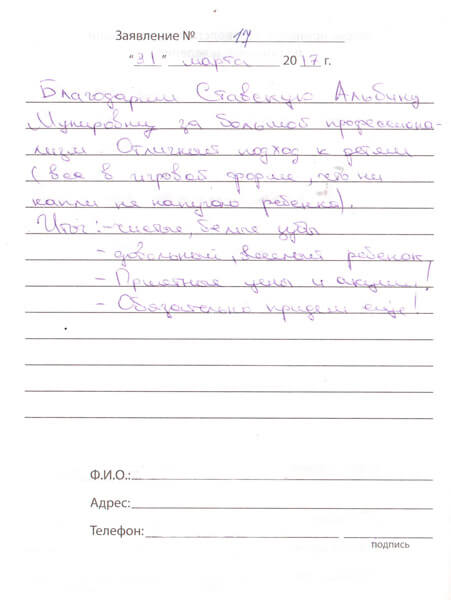 Заявление № 17
"31" марта 2017 г.
Благодарим Ставскую Альбину
Мунировну за большой профессиона-
лизм. Отличный подход к детям
(все в игровой форме, что ни
капли не напугало ребенка).
Итог:-чистые, белые зубы
- довольный, веселый ребенок,
- Приятные цены и акции!
- Обязательно придем еще!
Ф.И.О.:
Адрес:
Телефон:
подпись